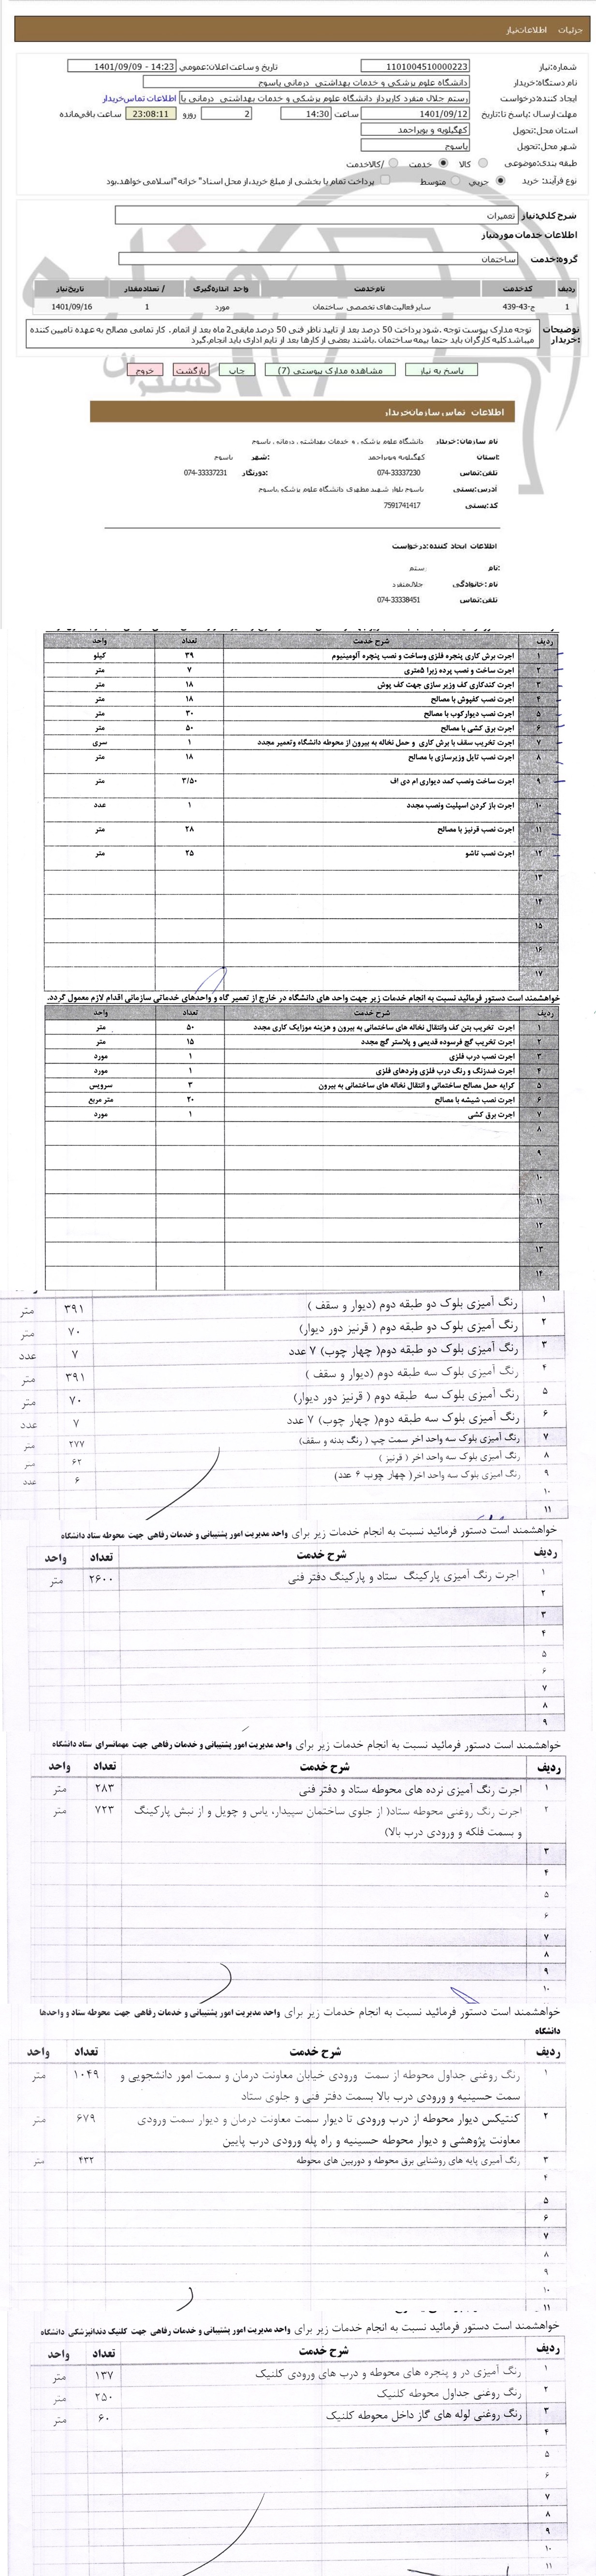 جزئیات اطلاعات‌نیاز
شماره‌:نیاز 1101004510000223 تاریخ و ساعت اعلان:عمومی 1401/09/09 - 14:23
نام دستگاه:خریدار دانشگاه علوم پزشکی و خدمات بهداشتی درمانی یاسوج
ایجاد کننده:درخواست رستم جلال منفرد کارپرداز دانشگاه علوم پزشکی و خدمات بهداشتی درمانی یا اطلاعات تماس‌خریدار
مهلت ارسال :پاسخ تا:تاریخ 1401/09/12 ساعت 14:30 2 روزو 23:08:11 ساعت باقی‌مانده
استان محل:تحویل کهگیلویه و بویراحمد
شهر محل:تحویل یاسوج
طبقه بندی:موضوعی کالا خدمت /کالاخدمت
نوع فرآیند: خرید جزیی متوسط پرداخت تمام یا بخشی از مبلغ خرید،از محل اسناد" خزانه "اسلامی خواهد.بود
شرح کلی:نیاز تعمیرات
اطلاعات خدمات موردنیاز
گروه:خدمت ساختمان
ردیف کدخدمت نام‌خدمت واحد اندازه‌گیری / تعداد‌مقدار تاریخ‌نیاز
1 ج-43-439 سایر فعالیت‌های تخصصی ساختمان مورد 1 1401/09/16
توضیحات :خریدار توجه مدارک پیوست توجه .شود پرداخت 50 درصد بعد از تایید ناظر فنی 50 درصد مابقی2 ماه بعد از اتمام. کار تمامی مصالح به عهده تامیین کننده
میباشدکلیه کارگران باید حتما بیمه ساختمان .باشند بعضی از کارها بعد از تایم اداری باید انجام.گیرد
پاسخ به نیاز مشاهده مدارک پیوستی (7) چاپ بازگشت خروج
اطلاعات تماس سازمان‌خریدار
نام سازمان:خریدار دانشگاه علوم پزشکی و خدمات بهداشتی درمانی یاسوج
:استان کهگیلویه وبویراحمد :شهر یاسوج
تلفن:تماس 074-33337230 :دورنگار 074-33337231
آدرس:پستی یاسوج بلوار شهید مطهری دانشگاه علوم پزشکی.یاسوج
کد:پستی 7591741417
اطلاعات ایجاد کننده:درخواست
:نام رستم
نام :خانوادگی جلال‌منفرد
تلفن:تماس 074-33338451
ردیف شرح خدمت تعداد واحد
۱ اجرت برش کاری پنجره فلزی وساخت و نصب پنچره آلومینیوم ۳۹ کیلو
۲ اجرت ساخت و نصب پرده زبرا ۵متری ۷ متر
۳ اجرت کندکاری کف وزیر سازی جهت کف پوش ۱۸ متر
۴ اجرت نصب کفپوش با مصالح ۱۸ متر
۵ اجرت نصب دیوارکوب با مصالح ۳۰ متر
۶ اجرت برق کشی با مصالح ۵۰ متر
۷ اجرت تخریب سقف با برش کاری و حمل نخاله به بیرون از محوطه دانشگاه وتعمیر مجدد ۱ سری
۸ اجرت نصب تایل وزیرسازی با مصالح ۱۸ متر
۹ اجرت ساخت ونصب کمد دیواری ام دی اف ۳/۵۰ متر
۱۰ اجرت باز کردن اسپلیت ونصب مجدد ۱ عدد
۱۱ اجرت نصب قرنیز با مصالح ۲۸ متر
۱۲ اجرت نصب تاشو ۲۵ متر
۱۳
۱۴
۱۵
۱۶
۱۷
خواهشمند است دستور فرمائید نسبت به انجام خدمات زیر جهت واحد های دانشگاه در خارج از تعمیر گاه و واحدهای خدماتی سازمانی اقدام لازم معمول گردد.
ردیف شرح خدمت تعداد واحد
۱ اجرت تخریب بتن کف وانتقال نخاله های ساختمانی به بیرون و هزینه موزاییک کاری مجدد ۵۰ متر
۲ اجرت تخریب گچ فرسوده قدیمی و پلاستر گچ مجدد ۱۵ متر
۳ اجرت نصب درب فلزی ۱ مورد
۴ اجرت ضدزنگ و رنگ درب فلزی ونردهای فلزی ۱ مورد
۵ کرایه حمل مصالح ساختمانی و انتقال نخاله های ساختمانی به بیرون ۳ سرویس
۶ اجرت نصب شیشه با مصالح ۲۰ متر مربع
۷ اجرت برق کشی ۱ مورد
۸
۹
۱۰
۱۱
۱۲
۱۳
۱۴
۱ رنگ آمیزی بلوک دو طبقه دوم (دیوار و سقف ) ۳۹۱ متر
۲ رنگ آمیزی بلوک دو طبقه دوم ( قرنیز دور دیوار) ۷۰ متر
۳ رنگ آمیزی بلوک دو طبقه دوم( چهار چوب) ۷ عدد ۷ عدد
۴ رنگ آمیزی بلوک سه طبقه دوم (دیوار و سقف ) ۳۹۱ متر
۵ رنگ آمیزی بلوک سه طبقه دوم ( قرنیز دور دیوار) ۷۰ متر
۶ رنگ آمیزی بلوک سه طبقه دوم( چهار چوب) ۷ عدد ۷ عدد
۷ رنگ آمیزی بلوک سه واحد اخر سمت چپ ( رنگ بدنه و سقف) ۲۷۷ متر
۸ رنگ آمیزی بلوک سه واحد اخر ( قرنیز ) ۶۲ متر
۹ رنگ امیزی بلوک سه واحد اخر( چهار چوب ۶ عدد) ۶ عدد
۱۰
۱۱
خواهشمند است دستور فرمائید نسبت به انجام خدمات زیر برای واحد مدیریت امور پشتیبانی و خدمات رفاهی جهت محوطه ستاد دانشگاه
ردیف شرح خدمت تعداد واحد
۱ اجرت رنگ آمیزی پارکینگ ستاد و پارکینگ دفتر فنی ۲۶۰۰ متر
۲
۳
۴
۵
۶
۷
۸
۹
خواهشمند است دستور فرمائید نسبت به انجام خدمات زیر برای واحد مدیریت امور پشتیبانی و خدمات رفاهی جهت مهمانسرای ستاد دانشگاه
ردیف شرح خدمت تعداد واحد
۱ اجرت رنگ آمیزی نرده های محوطه ستاد و دفتر فنی ۲۸۳ متر
۲ اجرت رنگ روغنی محوطه ستاد( از جلوی ساختمان سپیدار، یاس و چویل و از نبش پارکینگ ۷۲۳ متر
و بسمت فلکه و ورودی درب بالا)
۳
۴
۵
۶
۷
۸
۹
۱۰
خواهشمند است دستور فرمائید نسبت به انجام خدمات زیر برای واحد مدیریت امور پشتیبانی و خدمات رفاهی جهت محوطه ستاد و واحدها
دانشگاه
ردیف شرح خدمت تعداد واحد
۱ رنگ روغنی جداول محوطه از سمت ورودی خیابان معاونت درمان و سمت امور دانشجویی و ۱۰۴۹ متر
سمت حسینیه و ورودی درب بالا بسمت دفتر فنی و جلوی ستاد
۲ کنتیکس دیوار محوطه از درب ورودی تا دیوار سمت معاونت درمان و دیوار سمت ورودی ۶۷۹ متر
معاونت پژوهشی و دیوار محوطه حسینیه و راه پله ورودی درب پایین
۳ رنگ آمیزی پایه های روشنایی برق محوطه و دوربین های محوطه ۴۳۲ متر
۴
۵
۶
۷
۸
۹
۱۰
۱۱
خواهشمند است دستور فرمائید نسبت به انجام خدمات زیر برای واحد مدیریت امور پشتیبانی و خدمات رفاهی جهت کلنیک دندانپزشکی دانشگاه
ردیف شرح خدمت تعداد واحد
۱ رنگ آمیزی در و پنجره های محوطه و درب های ورودی کلنیک ۱۳۷ متر
۲ رنگ روغنی جداول محوطه کلنیک ۲۵۰ متر
۳ رنگ روغنی لوله های گاز داخل محوطه کلنیک ۶۰ متر
۴
۵
۶
۷
۸
۹
۱۰
۱۱